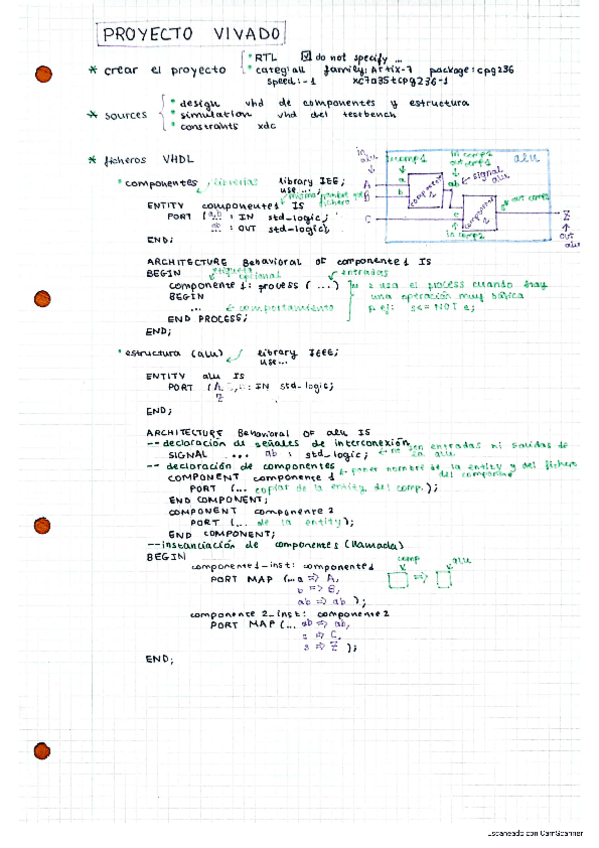 PROYECTO VIVADO
* crear el proyecto
* RTL ☑ do not specify ...
* categ: all family: Artix-7 package: cpg236
speed: -1 xc7a35tcpg236-1
* sources
* design vhd de componentes y estructura
* simulation vhd del testbench
* constraints xdc
* ficheros VHDL
* componentes librerías library IEEE;
use ...;
ENTITY componente1 IS
PORT (a,b : IN std_logic;
ab : OUT std_logic);
END;
in alu
in comp1
in comp2
out comp1
alu
signal alu
A
B
C
a
b
ab
componente 1
componente 2
out comp2
in comp2
Z
out alu
ARCHITECTURE Behavioral OF componente1 IS
BEGIN etiqueta opcional entradas
componente1: process (...) se usa el process cuando hay
BEGIN una operación muy básica
... comportamiento p. ej: s<= NOT e;
END PROCESS;
END;
* estructura (alu) library IEEE;
use...
ENTITY alu IS
PORT (A,B,C: IN std_logic;
Z
END;
ARCHITECTURE Behavioral OF alu IS
-- declaración de señales de interconexión
SIGNAL ... ab : std_logic; no son entradas ni salidas de la alu
-- declaración de componentes
COMPONENT componente 1 poner nombre de la entity y del fichero del componente
PORT (... copiar de la entity del comp.);
END COMPONENT;
COMPONENT componente 2
PORT (... de la entity);
END COMPONENT;
--instanciación de componentes (llamada)
BEGIN
componente1_inst: componente1
PORT MAP (...a => A,
b => B,
ab => ab );
comp => alu
componente 2_inst: componente2
PORT MAP (... ab => ab,
c => C,
s => Z );
END;
Escaneado con CamScanner